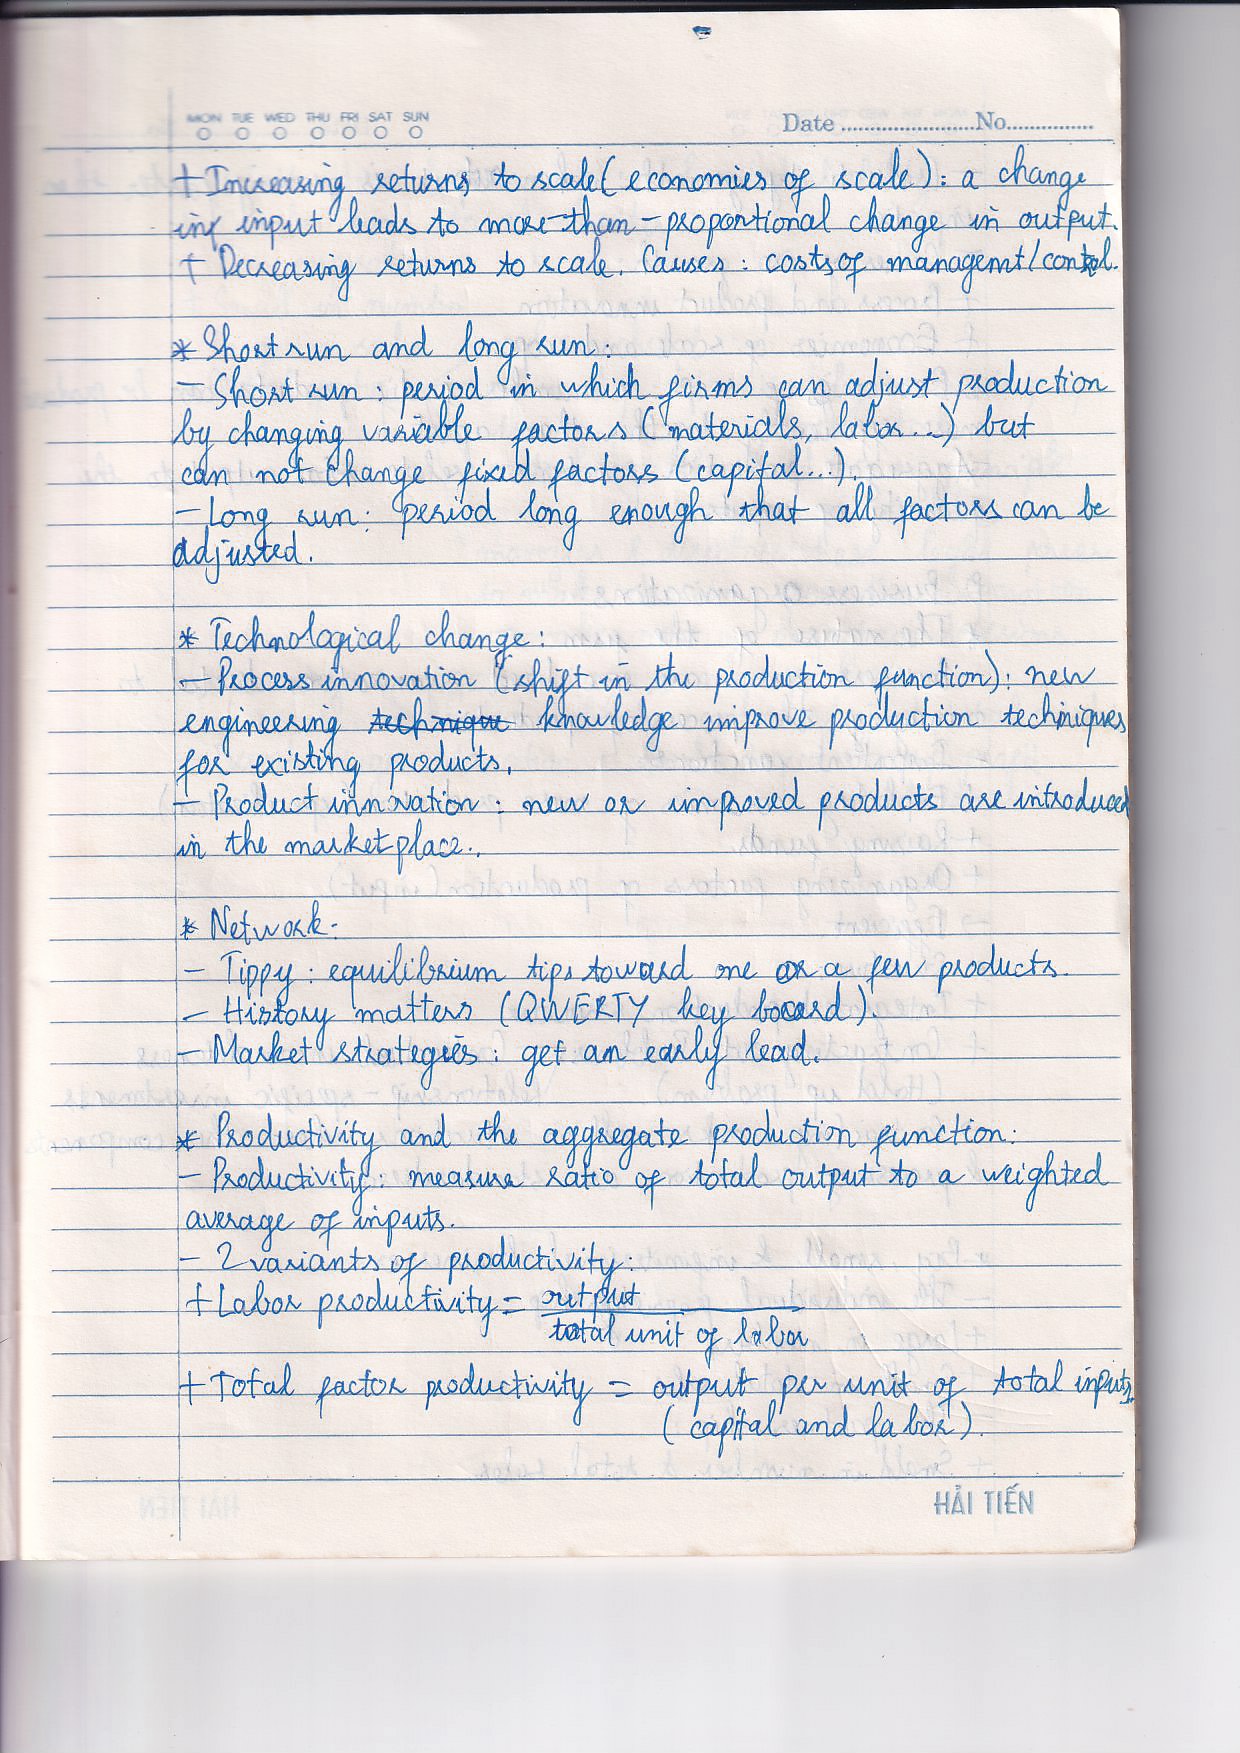 MON TUE WED THU FRI SAT SUN
Date ........................No................
+ Increasing returns to scale (economies of scale): a change
in input leads to more-than-proportional change in output.
+ Decreasing returns to scale. Causes: costs of managemt/control.
* Short run and long run:
- Short run: period in which firms can adjust production
by changing variable factors (materials, labor...) but
can not change fixed factors (capital...).
- Long run: period long enough that all factors can be
adjusted.
* Technological change:
- Process innovation (shift in the production function): new
engineering technique knowledge improve production techniques
for existing products.
- Product innovation: new or improved products are introduced
in the marketplace.
* Network:
- Tippy: equilibrium tips toward one or a few products.
- History matters (QWERTY key board).
- Market strategies: get an early lead.
* Productivity and the aggregate production function:
- Productivity: measure ratio of total output to a weighted
average of inputs.
- 2 variants of productivity:
+ Labor productivity = output
total unit of labor
+ Total factor productivity = output per unit of total inputs
(capital and labor).
HẢI TIẾN